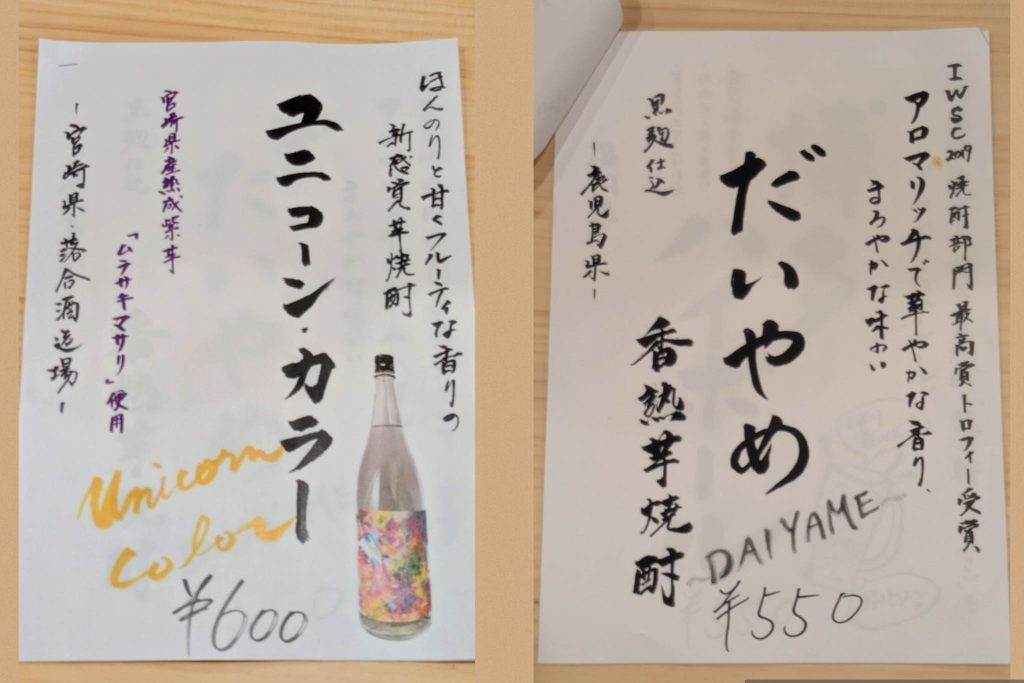 ほんのりと甘くフルーティな香りの
新感覚芋焼酎
ユニコーン・カラー
宮崎県産熟成紫芋
「ムラサキマサリ」使用
-宮崎県・落合酒造場-
Unicorn
Color
¥600
IWSC2019 焼酎部門 最高賞トロフィー受賞
アロマリッチで華やかな香り、
まろやかな味わい
だいやめ
香熟芋焼酎
~DAIYAME~
黒麹仕込
-鹿児島県-
¥550